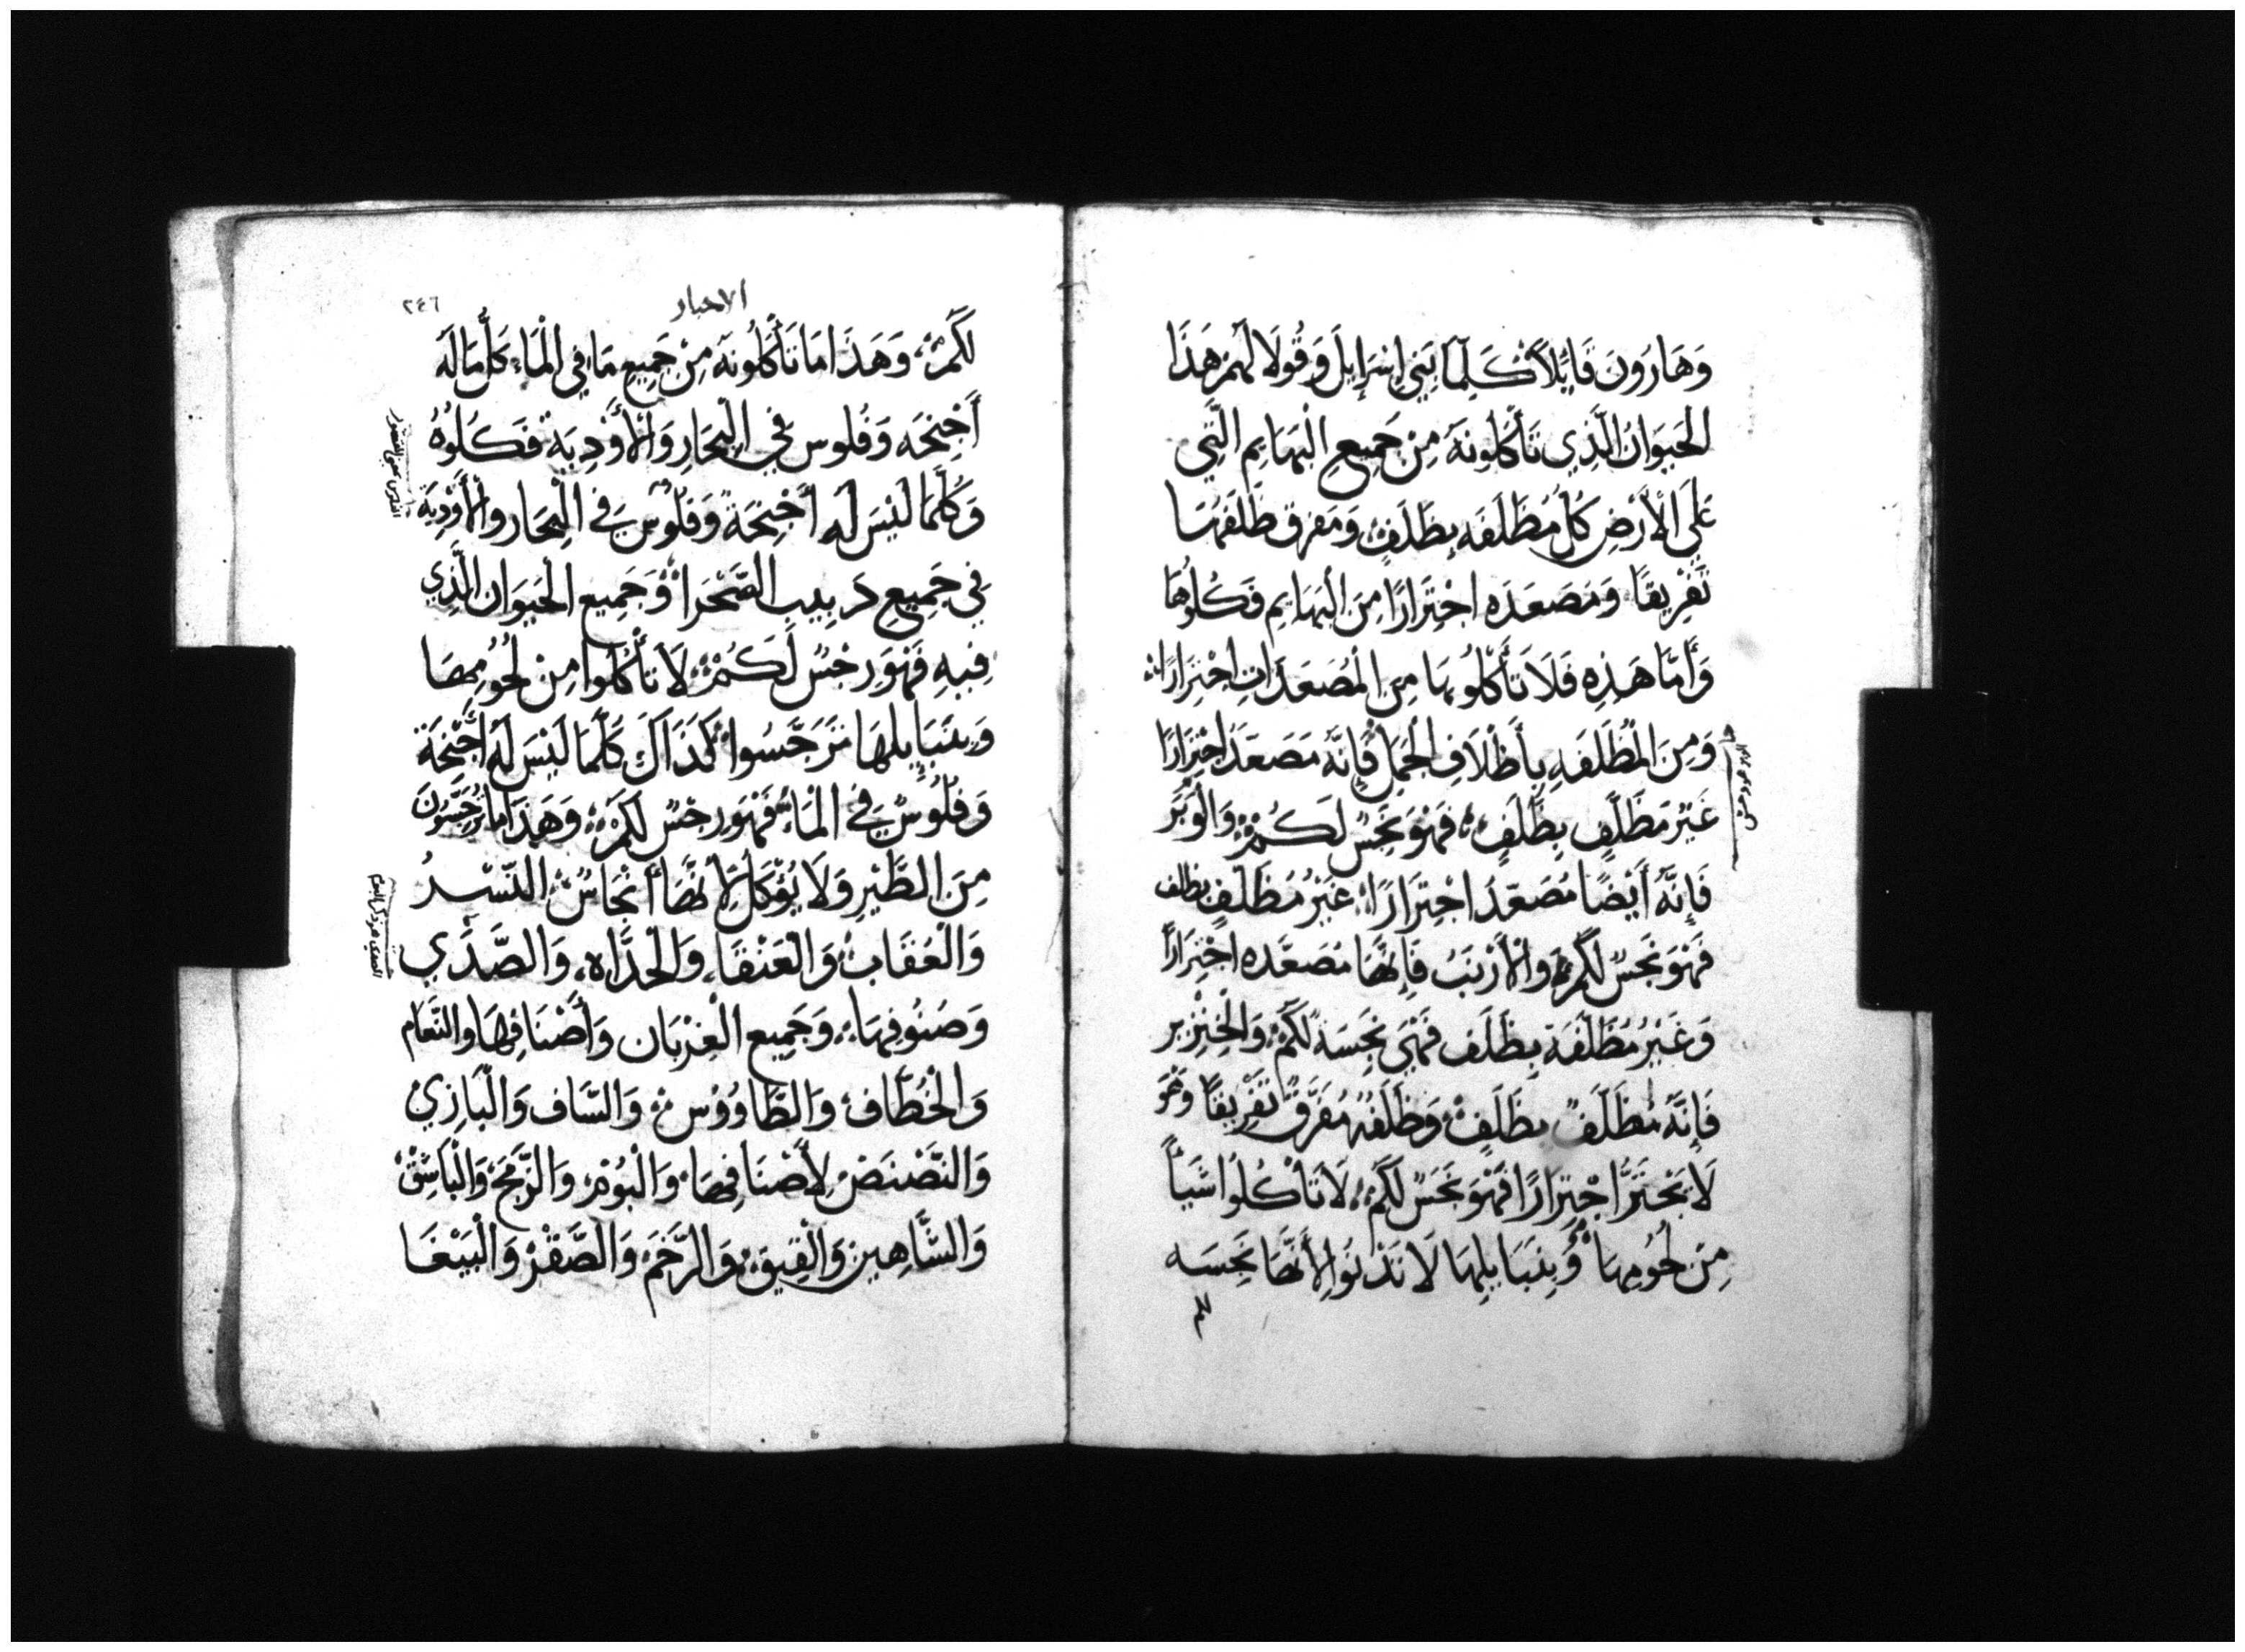 وَهَارُونَ قَايْلاً كَلِّمَا بَنِي إِسْرَايِلَ وَقُولَا لَهُمْ هَذَا
الحَيَوَانُ الَّذِي تَأْكُلُونَهُ مِنْ جَمِيعِ الْبَهَايِمِ الَّتِي
عَلَى الْأَرْضِ كُلُّ مُظَلَّفَه بِظَلَفٍ وَمَفرق ظَلَفهَا
تَفْرِيقًا وَمُصَعَدَه اجْتِرَارًا مِنَ الْبَهَايِمِ فَكُلُوهَا
وَأَمَّا هَذِهِ فَلَا تَأْكُلُوهَا مِنَ الْمُصَعَدَاتِ اجْتِرَارًا
وَمِنَ الْمُظَلَّفَهِ بِأَظْلَافِ الْجَمَلُ فَإِنَّهُ مَصَعَدَ اجْتِرَارًا
غَيْرَ مَظَلَّفٍ بِظَلَفٍ فَهُوَ نَجَسٌ لَكُمْ وَالْوَبَرُ
فَإِنَّهُ أَيْضًا مُصَعَدَ اجْتِرَارًا غَيْرُ مُظَلَّفٍ بظلف
فَهُوَ نَجَسٌ لَكُمْ وَالْأَرْنَبُ فَإِنَّهَا مُصَعَّدَه اجْتِرَارًا
وَغَيْرُ مُظَلَّفَةٍ بِظَلَف فَهْيَ نَجِسَةٌ لَكُمْ وَالْخِنْزِير
فَإِنَّهُ مُظَلَّفٌ بِظَلَفٍ وَظَلَفُهُ مُفَرَّقٌ تَفْرِيقًا وَهُوَ
لَا يَجْتَرُّ اجْتِرَارًا فَهُوَ نَجَسٌ لَكُمْ لَا تَأْكُلُوا شَيْأً
مِنْ لُحُومِهَا وَبِنَبَايِلِهَا لَا تَدْنُوا لِأَنَّهَا نَجِسَه
الاحبار
٢٤٦
لَكُمْ وَهَذَا مَا تَأْكُلُونَهُ مِنْ جَمِيعِ مَا فِي الْمَاءِ كُلُّ مَا لَهُ
أَجْنِحَه وَفُلوس فِي الْبِحَارِ وَالْأَوْدِيَةِ فَكُلُوهُ
وَكُلَّمَا لَيْسَ لَهُ أَجْنِحَةً وَفُلُوسٌ فِي الْبِحَار وَالْأَوْدِيَةِ
فِي جَمِيعِ دَبِيبِ الصَّحْرَا وَجَمِيعِ الْحَيَوَان الَّذِي
فِيهِ فَهُوَ رِجْسٌ لَكُمْ لَا تَأْكُلُوا مِنْ لُحُومِهَا
وَبِنَبَايِلِهَا تَرَجَّسُوا كَذَاكَ كُلَّمَا لَيْسَ لَهُ أَجْنِحَةٌ
وَفُلُوسٌ فِي الْمَاءِ فَهُوَ رِجْسٌ لَكُمْ وَهَذَا مَا تُرَجِّسُونَ
مِنَ الطَّيْرِ وَلَا يُؤْكَلُ لِأَنَّهَا أَنْجَاسٌ النَّسْرُ
وَالْعُقَابُ وَالْعَنْقَا وَالْحَدَّاه وَالصَّدَي
وَصَنُوفِهَا وَجَمِيعِ الْغِرْبَان وَأَصْنَافِهَا وَالنَّعَام
وَالْخُطَّاف وَالطَّاوُوْس وَالسَّاف وَالْبَازِيْ
وَالنَّضْنَضْ لِأَصْنَافِهَا وَالْبُوْم وَالزُّمَّج وَالْبَاشِقْ
وَالشَّاهِين وَالْقِيق وَالرَّخَم وَالصَّقْر وَالْبَبْغَا